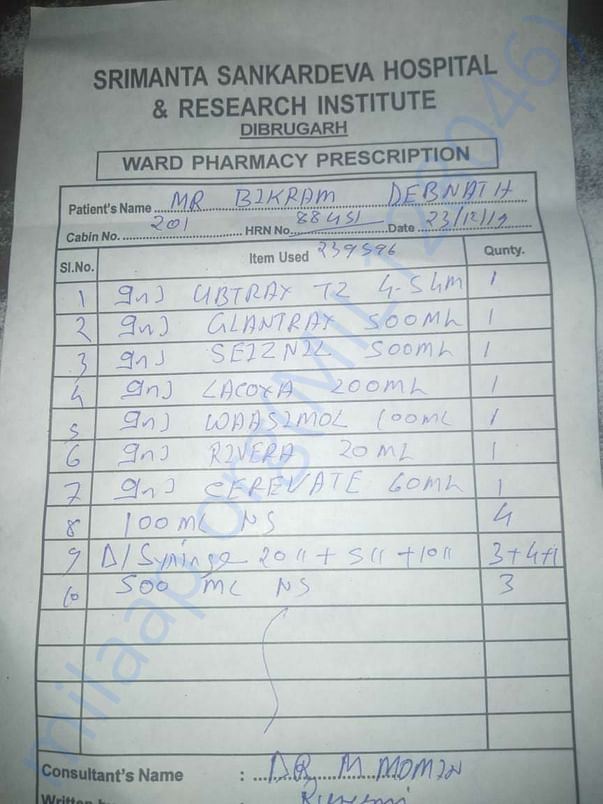 SRIMANTA SANKARDEVA HOSPITAL
& RESEARCH INSTITUTE
DIBRUGARH
WARD PHARMACY PRESCRIPTION
Patient's Name MR BIKRAM DEBNATH
Cabin No. 201 HRN No. 88451 Date 23/12/19
Sl.No. Item Used 239596 Qunty.
1 Inj UBTRAX TZ 4.5GM 1
2 Inj GLANTRAX 500ML 1
3 Inj SEIZNIL 500ML 1
4 Inj LACOXA 200ML 1
5 Inj WAASIMOL 100ML 1
6 Inj RIVERA 20ML 1
7 Inj CEREVATE 60ML 1
8 100 ML NS 4
9 D/Syringe 20cc + 5cc + 10cc 3+4+1
10 500 ML NS 3
Consultant's Name : DR M MOMIN
Written by
milaap.org